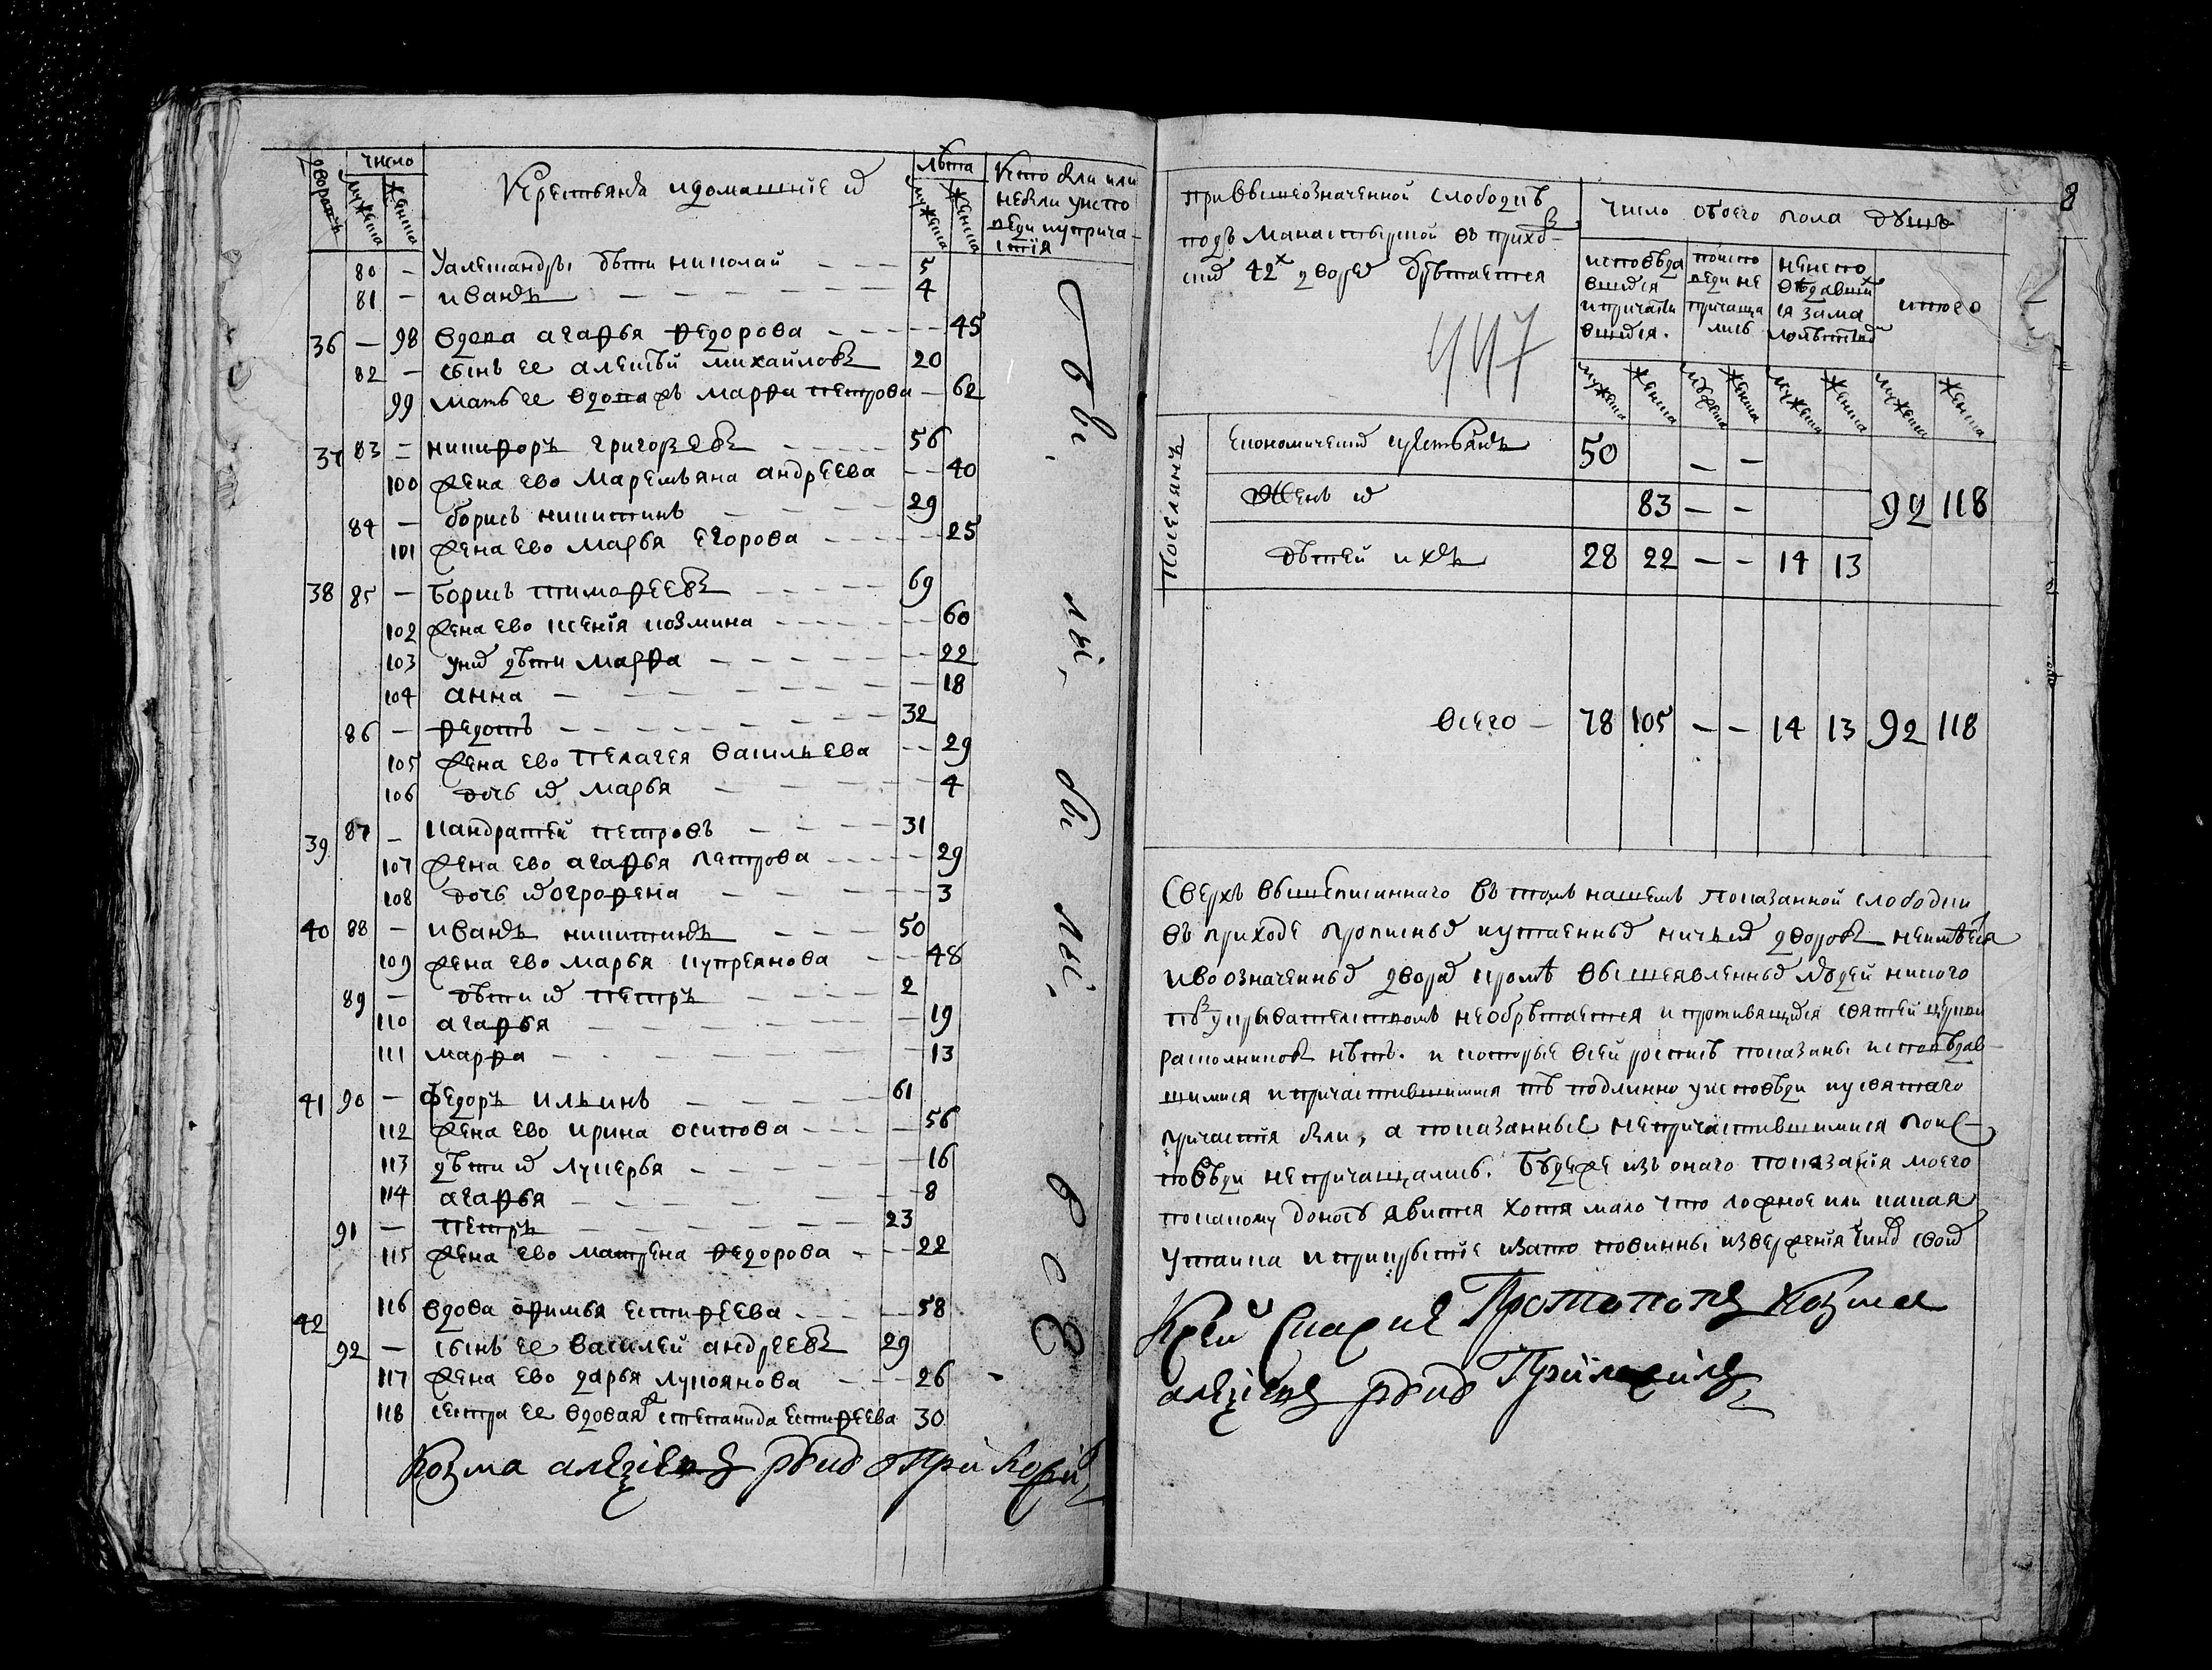 число
лѣта
Кто были или
дворамъ
мужеска
женска
Крестьяня и домашние их
мужеска
женска
не были у испо
веди и прича
стія
80 – У алеѯандры дѣти николай – – – 5
81 – иванъ – – – – – – 4
36 – 98 вдова агафья федорова – – – – – 45
82 – сынъ ее алеѯѣй михайловъ 20
99 мать ее вдова жъ марфа петрова – 62
37 83 – никифоръ григорьевъ – – – – 56
100 жена ево маремьяна андреева – – 40
84 – борисъ никитинъ – – – – 29
101 жена ево марья егорова – – – – – 25
38 85 – борисъ тимофеевъ – – – – 69
102 жена ево ксенія козмина – – – – – – 60
103 у них дѣти марфа – – – – – – – 22
104 анна – – – – – – – 18
86 – федотъ – – – – – – – 32
105 жена ево пелагея васильева – – 29
106 дочь их марья – – – – – 4
39 87 – кандратей петровъ – – – – 31
107 жена ево агафья петрова – – – – – 29
108 дочь их огрофена – – – – – 3
40 88 – иванъ никитинъ – – – 50
109 жена ево марья купреянова – – – 48
89 – дѣти их петръ – – – – – 2
110 агафья – – – – – – – 19
111 марфа – – – – – – – 13
41 90 – Федоръ ильинъ – – – – – 61
112 жена ево ирина осипова – – – – – 56
113 дѣти их лукерья – – – – – 16
114 агафья – – – – – – 8
91 – петръ – – – – – – – 23
115 жена ево матрена федорова – – – 22
42 116 вдова офимья естифеева – – – – 58
92 – сынъ ее василей андреевъ 29
117 жена ево дарья лукоянова – – – 26
118 сестра ее вдова ж степанида естифеева 30
бы
лы,
бы
лы,
все
Козма алеѯіевъ руку приложилъ
8
при вышеозначенной слободѣ
подъ манастырной въ прихо
ских 42х дворех обретается
447
число обоего пола душъ
исповѣда
вшихся
и причасти
вшихся.
по испо
веди не
причаща
лись
не испо
вѣдавших
ся за мало
лѣтством
итого
мужеска женска мужеска женска мужеска женска мужеска женска
Поселянъ
економических крестьянъ 50 – –
женъ их 83 – – 92 118
дѣтей ихъ 28 22 – – 14 13
всего – 78 105 – – 14 13 92 118
Сверхъ вышеписаннаго въ томъ нашемъ показанной слободки
въ приходе прописных и утаенных ничьих дворовъ не имѣется
и во означенных дворах кромѣ вышеявленных людей никого
съ укрывателством не обрѣтается и противящихся святей церкви
расколниковъ нѣтъ. и которые в сей росписѣ показаны исповѣдав
шимися и причастившимися тѣ подлинно у исповѣди и у святаго
причастія были, а показанные не причастившимися по ис
повѣди не причащались. Будеже изъ онаго показанія моего
по какому доносу явится хотя мало что ложное или какая
утайка и прикрытіе и за то повинны извержения чинов своих
Крей Спаские Протопопъ Козма
алеѯіевъ руку Приложилъ